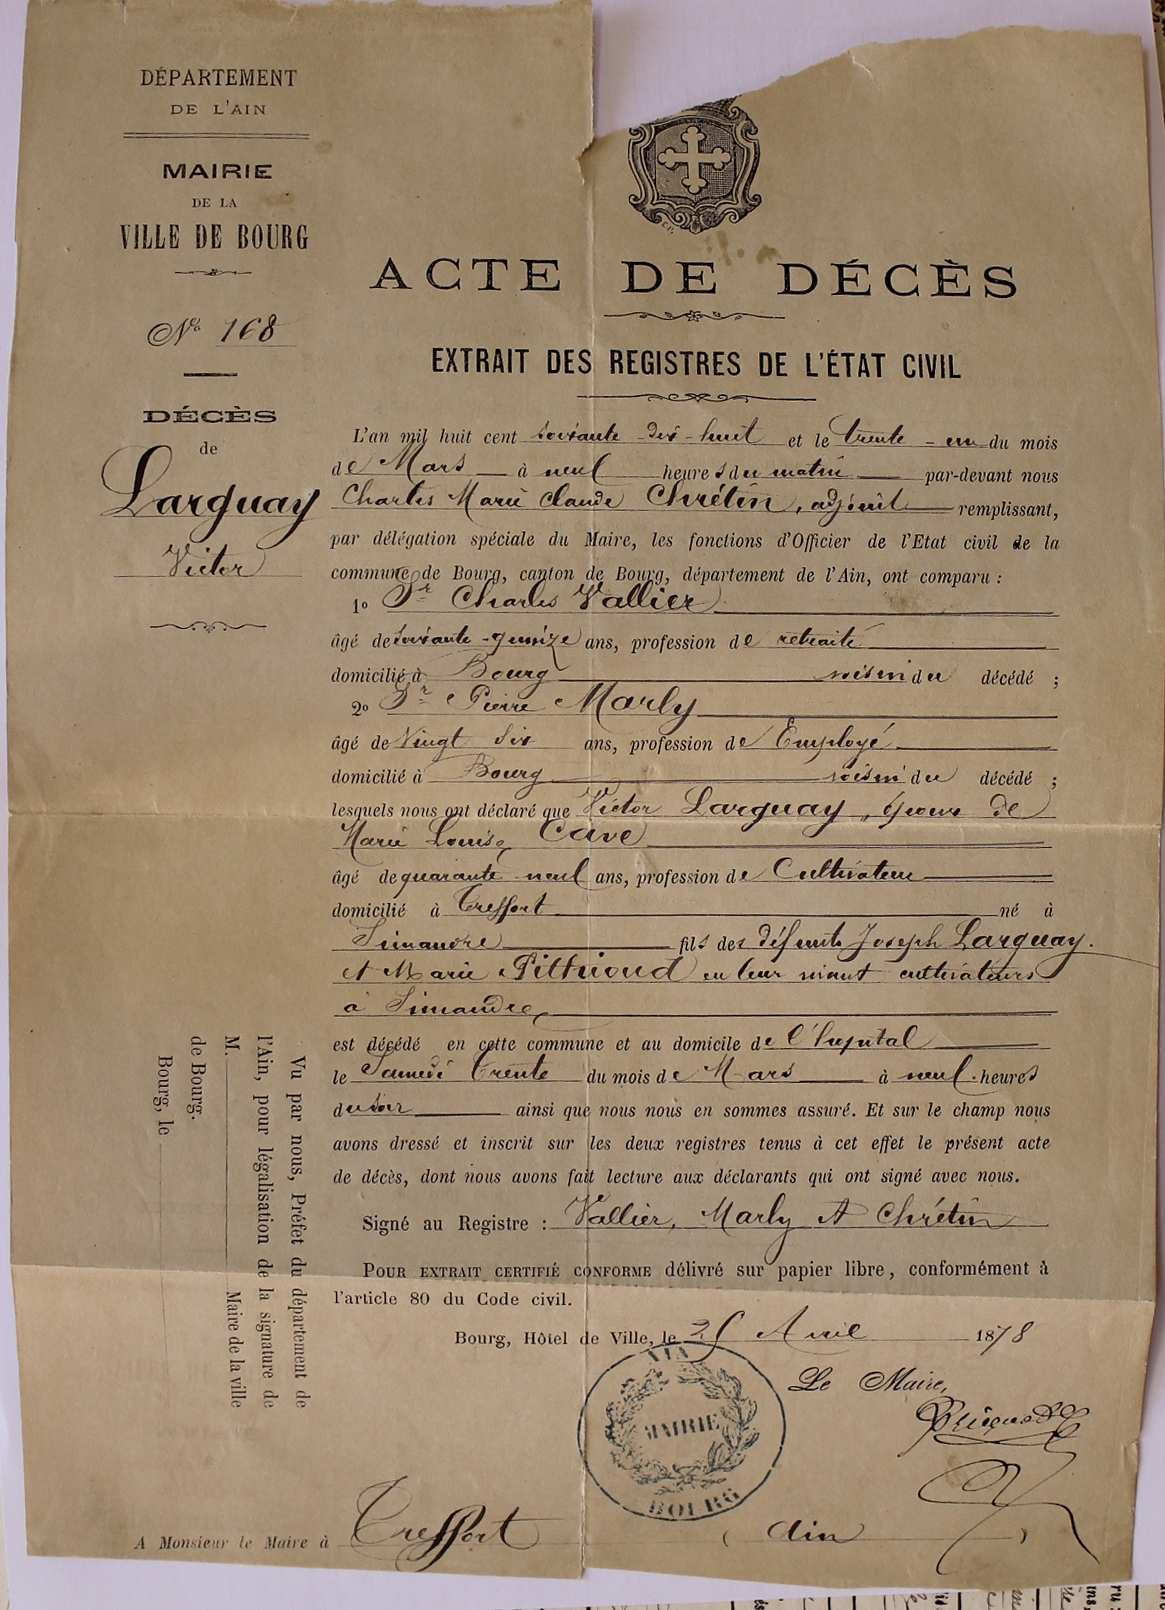 DÉPARTEMENT
DE L'AIN
MAIRIE
DE LA
VILLE DE BOURG
N° 168
DÉCÈS
de
Larguay
Victor
ACTE DE DÉCÈS
EXTRAIT DES REGISTRES DE L'ÉTAT CIVIL
L'an mil huit cent soixante-dix-huit et le trente-un du mois
de Mars à neuf heures du matin par-devant nous
Charles Marie Claude Chrétin, adjoint remplissant,
par délégation spéciale du Maire, les fonctions d'Officier de l'Etat civil de la
commune de Bourg, canton de Bourg, département de l'Ain, ont comparu :
1° Sr Charles Vallier
âgé de soixante-quinze ans, profession de retraité
domicilié à Bourg voisin du décédé ;
2° Sr Pierre Marly
âgé de Vingt Six ans, profession de Employé
domicilié à Bourg voisin du décédé ;
lesquels nous ont déclaré que Victor Larguay, époux de
Marie Louise Cave
âgé de quarante neuf ans, profession de Cultivateur
domicilié à Treffort né à
Simandre fils des défunts Joseph Larguay
et Marie Pithioud en leur vivant cultivateurs
à Simandre
est décédé en cette commune et au domicile de l'hopital
le Samedi trente du mois de Mars à neuf heures
du soir ainsi que nous nous en sommes assuré. Et sur le champ nous
avons dressé et inscrit sur les deux registres tenus à cet effet le présent acte
de décès, dont nous avons fait lecture aux déclarants qui ont signé avec nous.
Signé au Registre : Vallier, Marly et Chrétin
POUR EXTRAIT CERTIFIÉ CONFORME délivré sur papier libre, conformément à
l'article 80 du Code civil.
Bourg, Hôtel de Ville, le 25 Avril 1878
Le Maire,
AIN
MAIRIE
BOURG
Vu par nous, Préfet du département de
l'Ain, pour légalisation de la signature de
M. Maire de la ville
de Bourg.
Bourg, le
A Monsieur le Maire à Treffort (Ain)